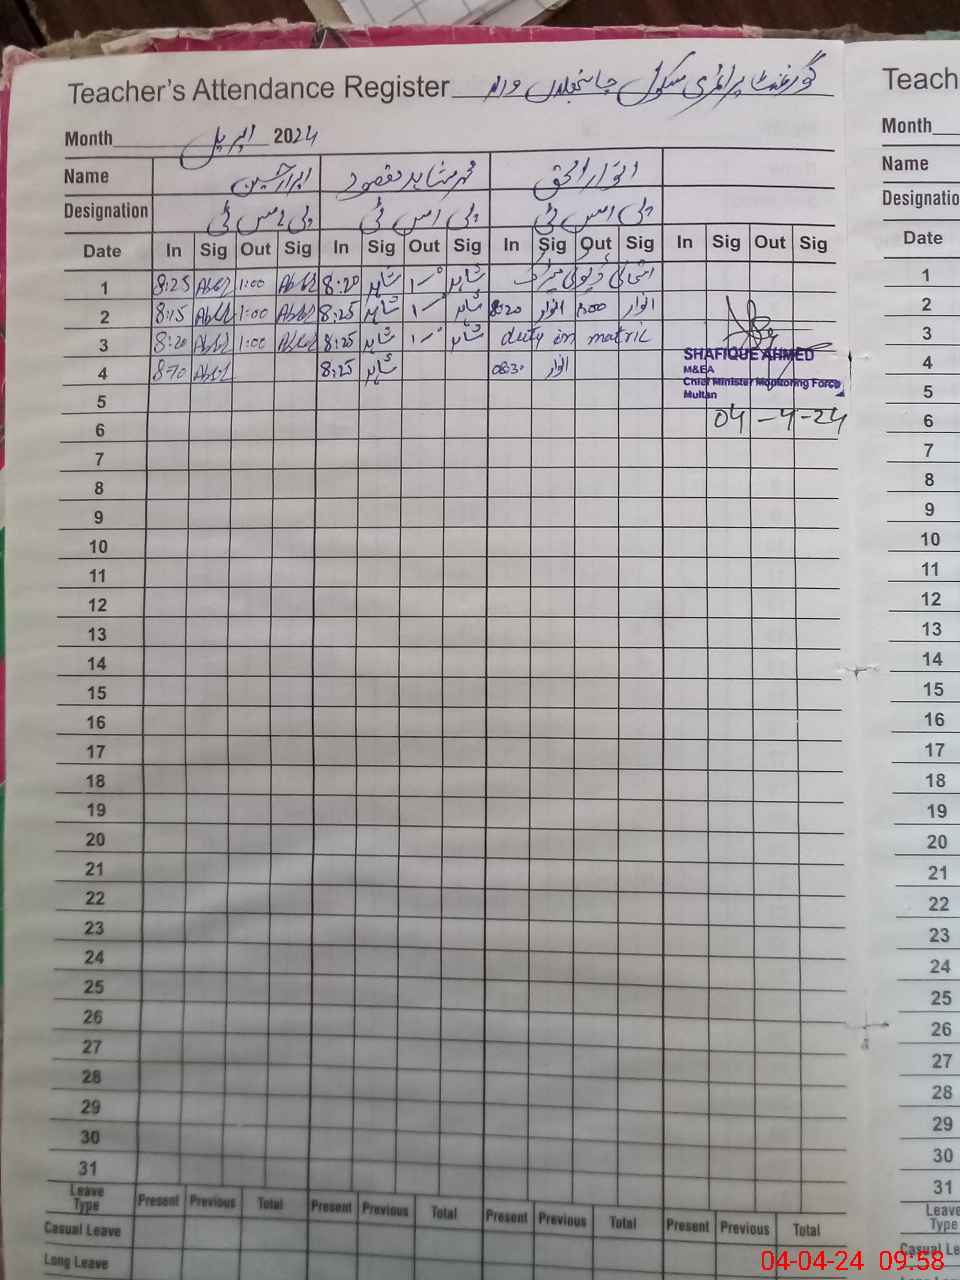 Teacher's Attendance Register گورنمنٹ پرائمری سکول والا
Month اپریل 2024
Name ابرار حسین محمد شاہد مقصود انوار الحق
Designation پی ایس ٹی پی ایس ٹی پی ایس ٹی
Date In Sig Out Sig In Sig Out Sig In Sig Out Sig In Sig Out Sig
1 8:25 1:00 8:20 شاہد 1-0 شاہد امتحانی ڈیوٹی میٹرک
2 8:15 1:00 8:25 شاہد 1-0 شاہد 8:20 انوار 1:00 انوار
3 8:20 1:00 8:25 شاہد 1-0 شاہد duty in matric
4 8:25 شاہد 08:30 انوار
SHAFIQUE AHMED
M&EA
Chief Minister Monitoring Force
Multan
04-4-24
5
6
7
8
9
10
11
12
13
14
15
16
17
18
19
20
21
22
23
24
25
26
27
28
29
30
31
Leave Type Present Previous Total Present Previous Total Present Previous Total Present Previous Total
Casual Leave
Long Leave
Teach
Month
Name
Designatio
Date
1
2
3
4
5
6
7
8
9
10
11
12
13
14
15
16
17
18
19
20
21
22
23
24
25
26
27
28
29
30
31
Leave
Type
Casual Le
04-04-24 09:58